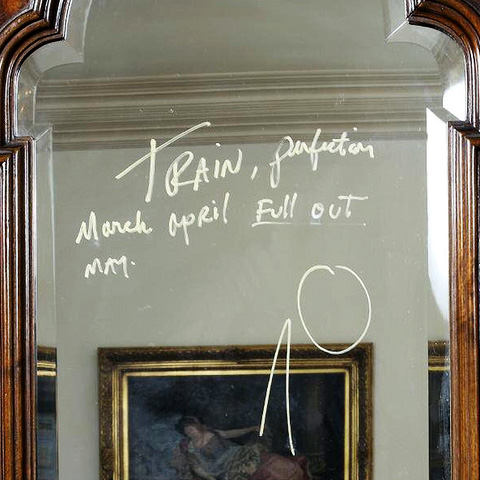 TRAIN, perfection
March april Full out
MAY.